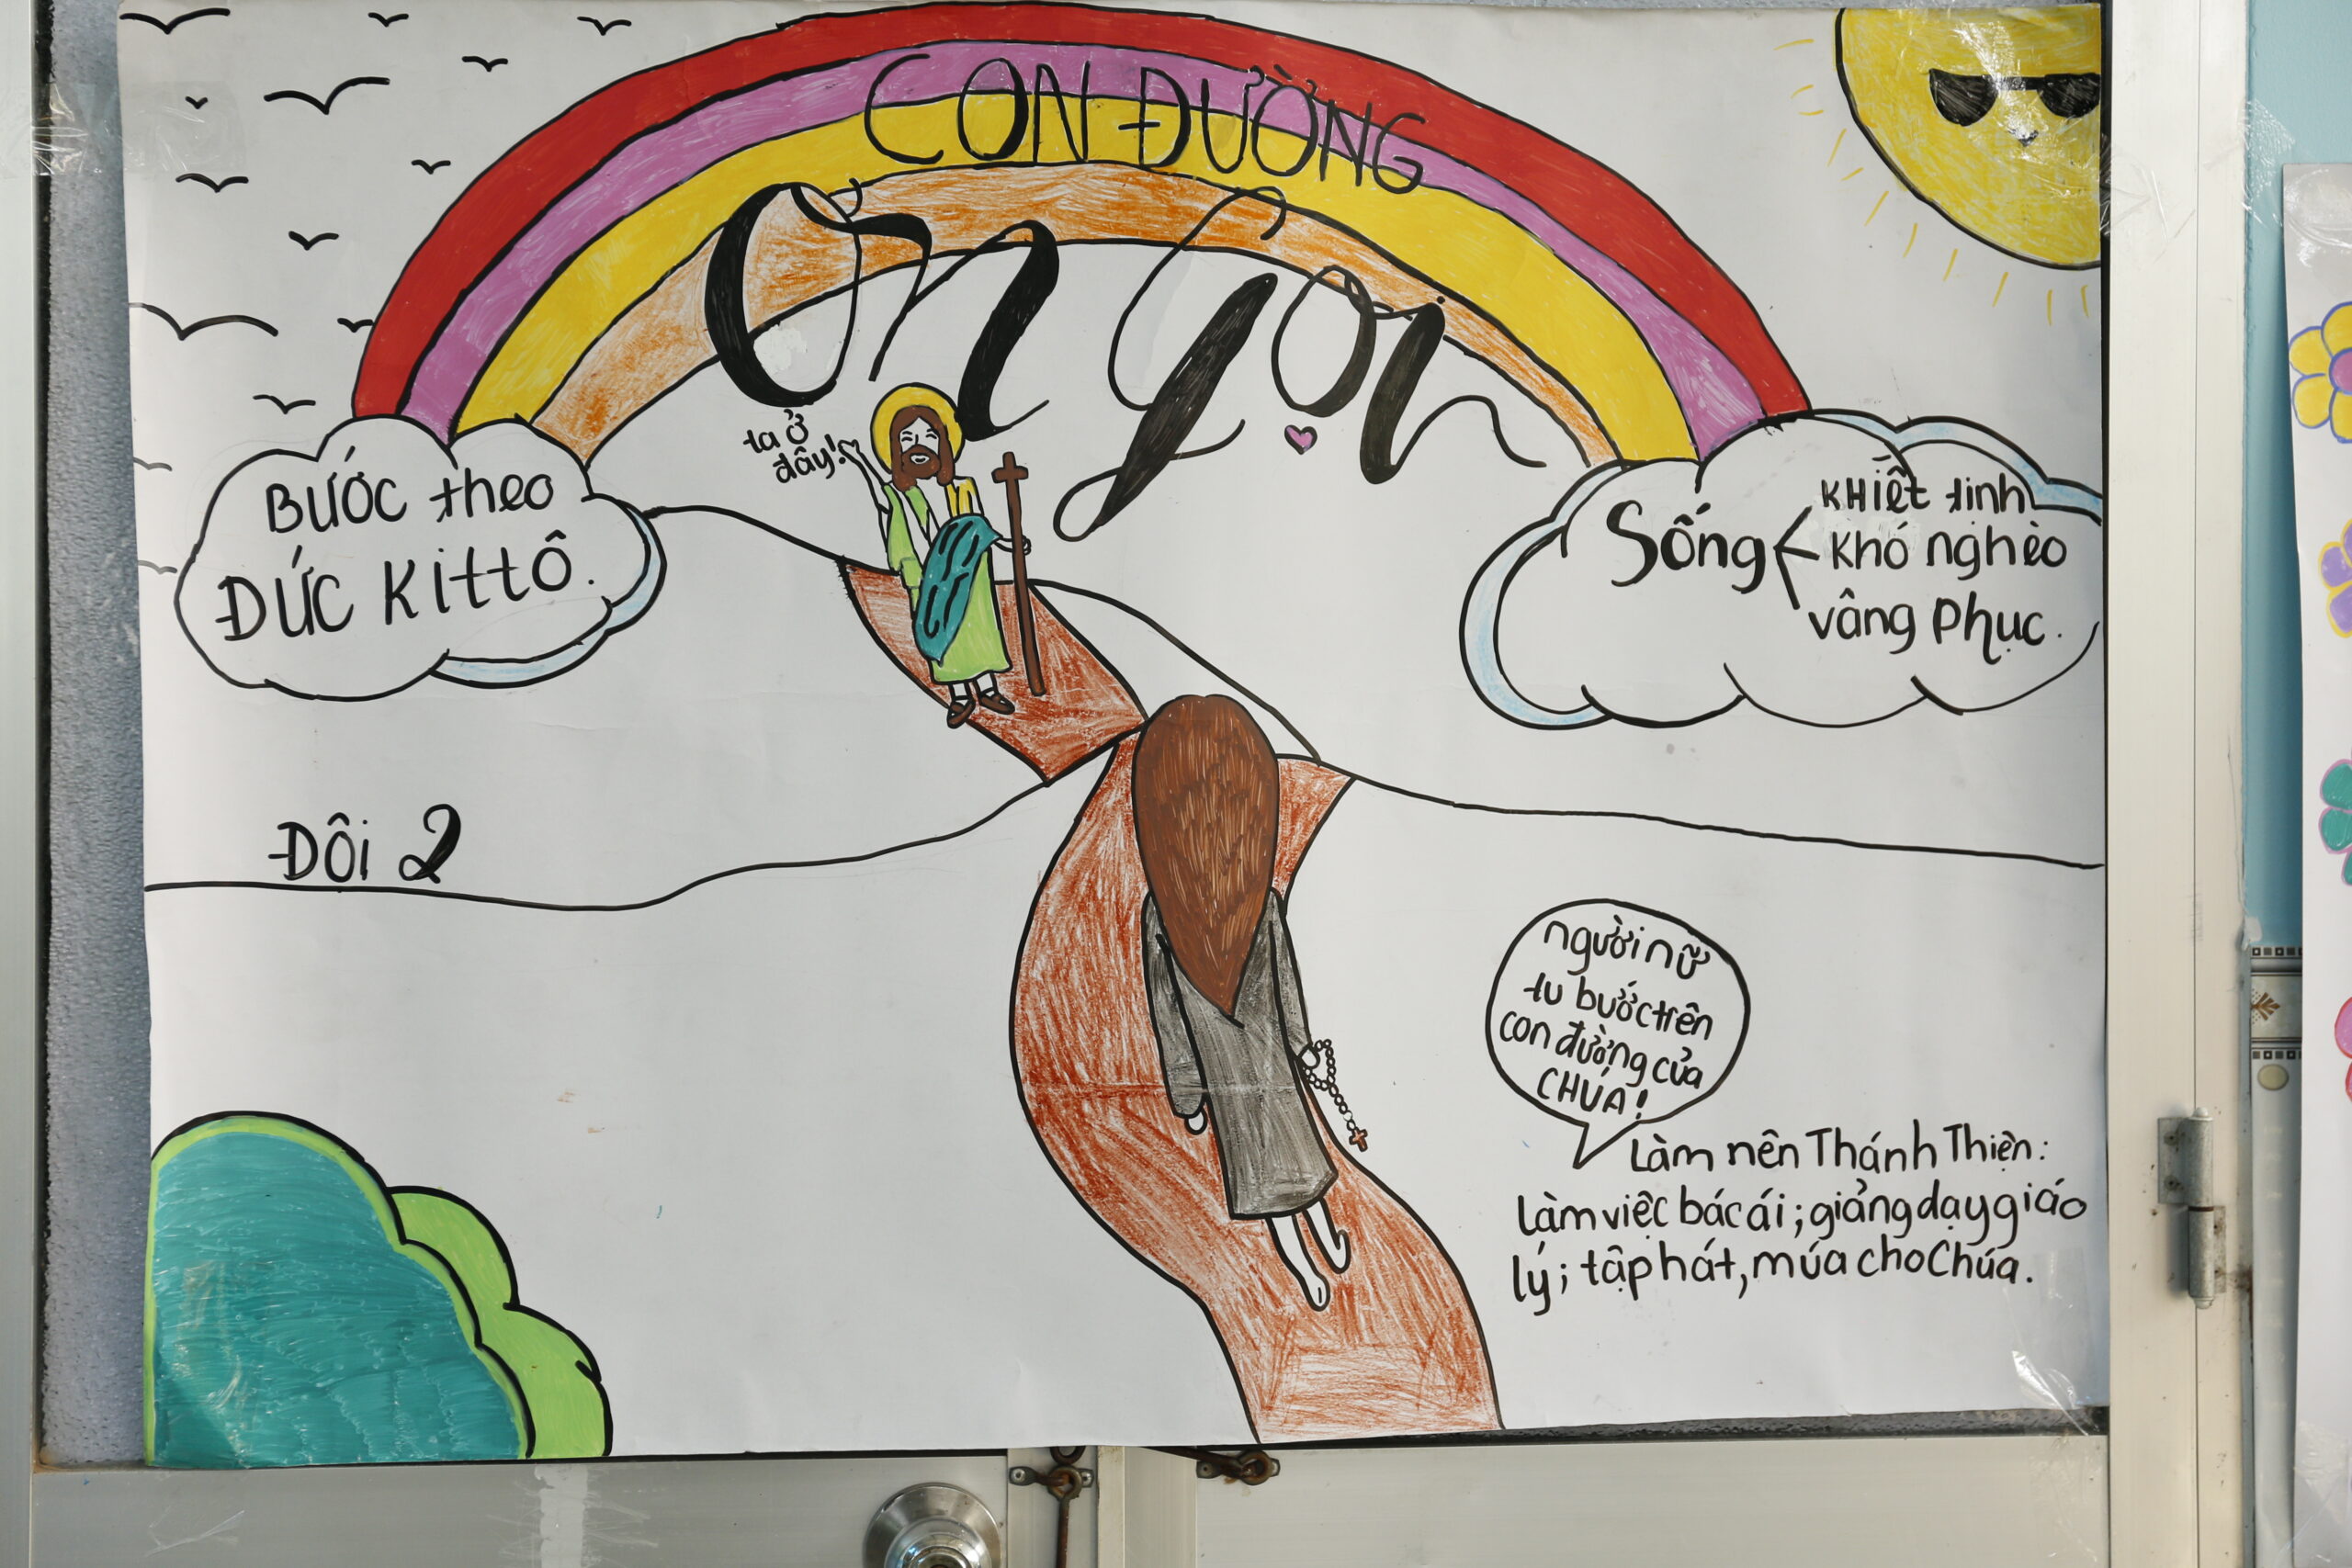 CON ĐƯỜNG
Ơn Gọi
ta ở
đây!
BƯỚC theo
ĐỨC Kittô.
Sống
KHIẾt tịnh
Khó nghèo
vâng Phục.
Đôi 2
người nữ
tu bước trên
con đường của
CHÚA!
Làm nên Thánh Thiện:
Làm việc bác ái; giảng dạy giáo
lý; tập hát, múa cho Chúa.